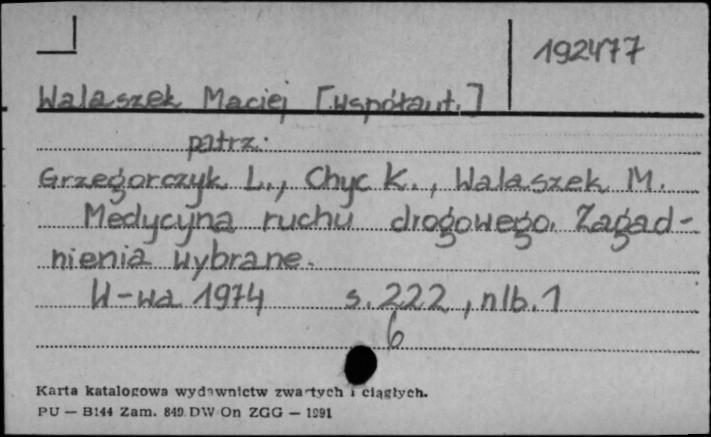 192477
Walaszek Maciej [współaut.]
patrz:
Grzegorczyk L., Chyc K., Walaszek M.
Medycyna ruchu drogowego. Zagad-
nienia wybrane.
W-wa 1974 s. 222, nlb. 1
6
Karta katalogowa wydawnictw zwartych i ciągłych.
PU — B144 Zam. 849 DW On ZGG — 1991